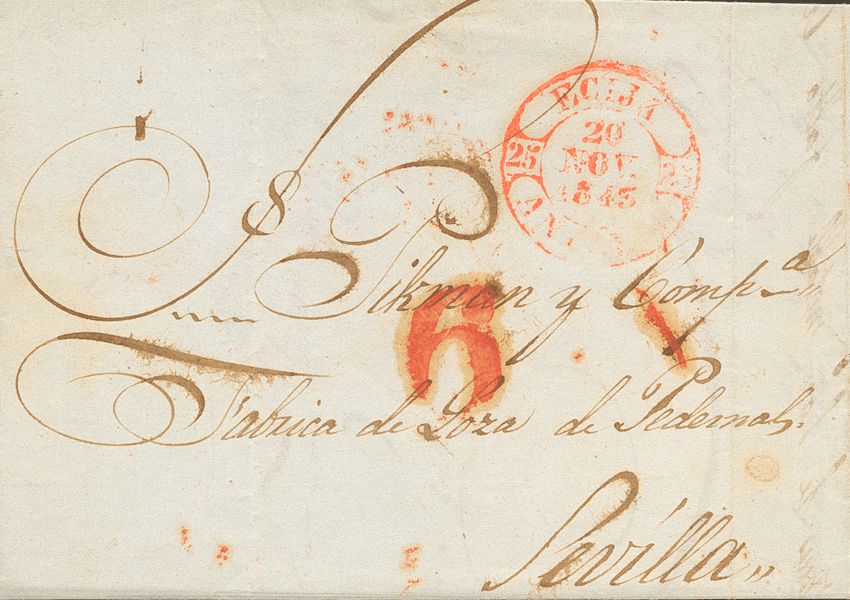 ECIJA
20
NOV.
1843
25
AN
S.
Pikman y Comp.a
6
Fabrica de Loza de Pedernal.
Sevilla